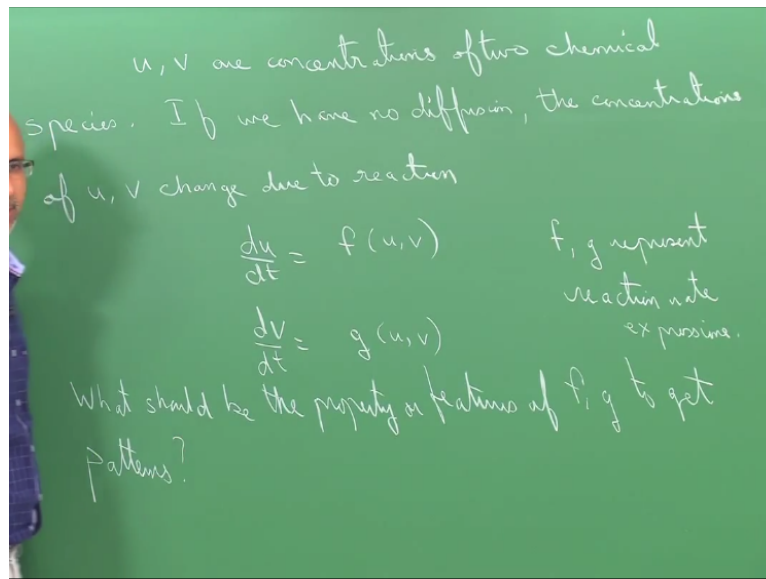 u, v are concentrations of two chemical
species. If we have no diffusion, the concentrations
of u, v change due to reaction
du/dt = f(u,v)
f, g represent
reaction rate
expressions.
dv/dt = g(u,v)
What should be the property or features of f, g to get
patterns?